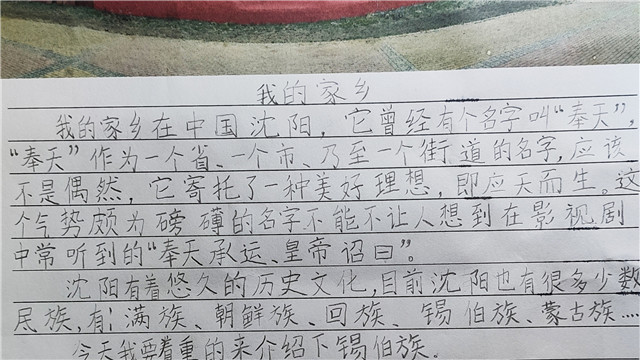 我的家乡
我的家乡在中国沈阳，它曾经有个名字叫“奉天”，
“奉天”作为一个省、一个市、乃至一个街道的名字，应该
不是偶然，它寄托了一种美好理想，即应天而生。这
个气势颇为磅礴的名字不能不让人想到在影视剧
中常听到的“奉天承运、皇帝诏曰”。
沈阳有着悠久的历史文化，目前沈阳也有很多少数
民族，有：满族、朝鲜族、回族、锡伯族、蒙古族……
今天我要着重的来介绍下锡伯族。